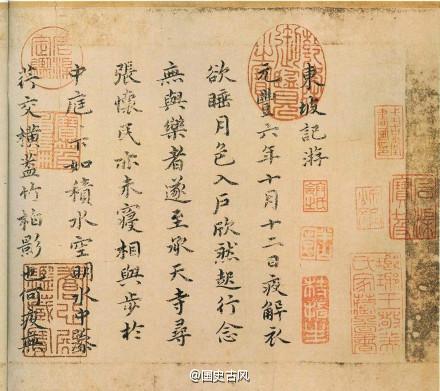 東坡記游
元豐六年十月十二日夜解衣
欲睡月色入戶欣然起行念
無與樂者遂至承天寺尋
張懷民亦未寢相與步於
中庭下如積水空明水中藻
荇交橫蓋竹柏影也何夜無
@国史古风